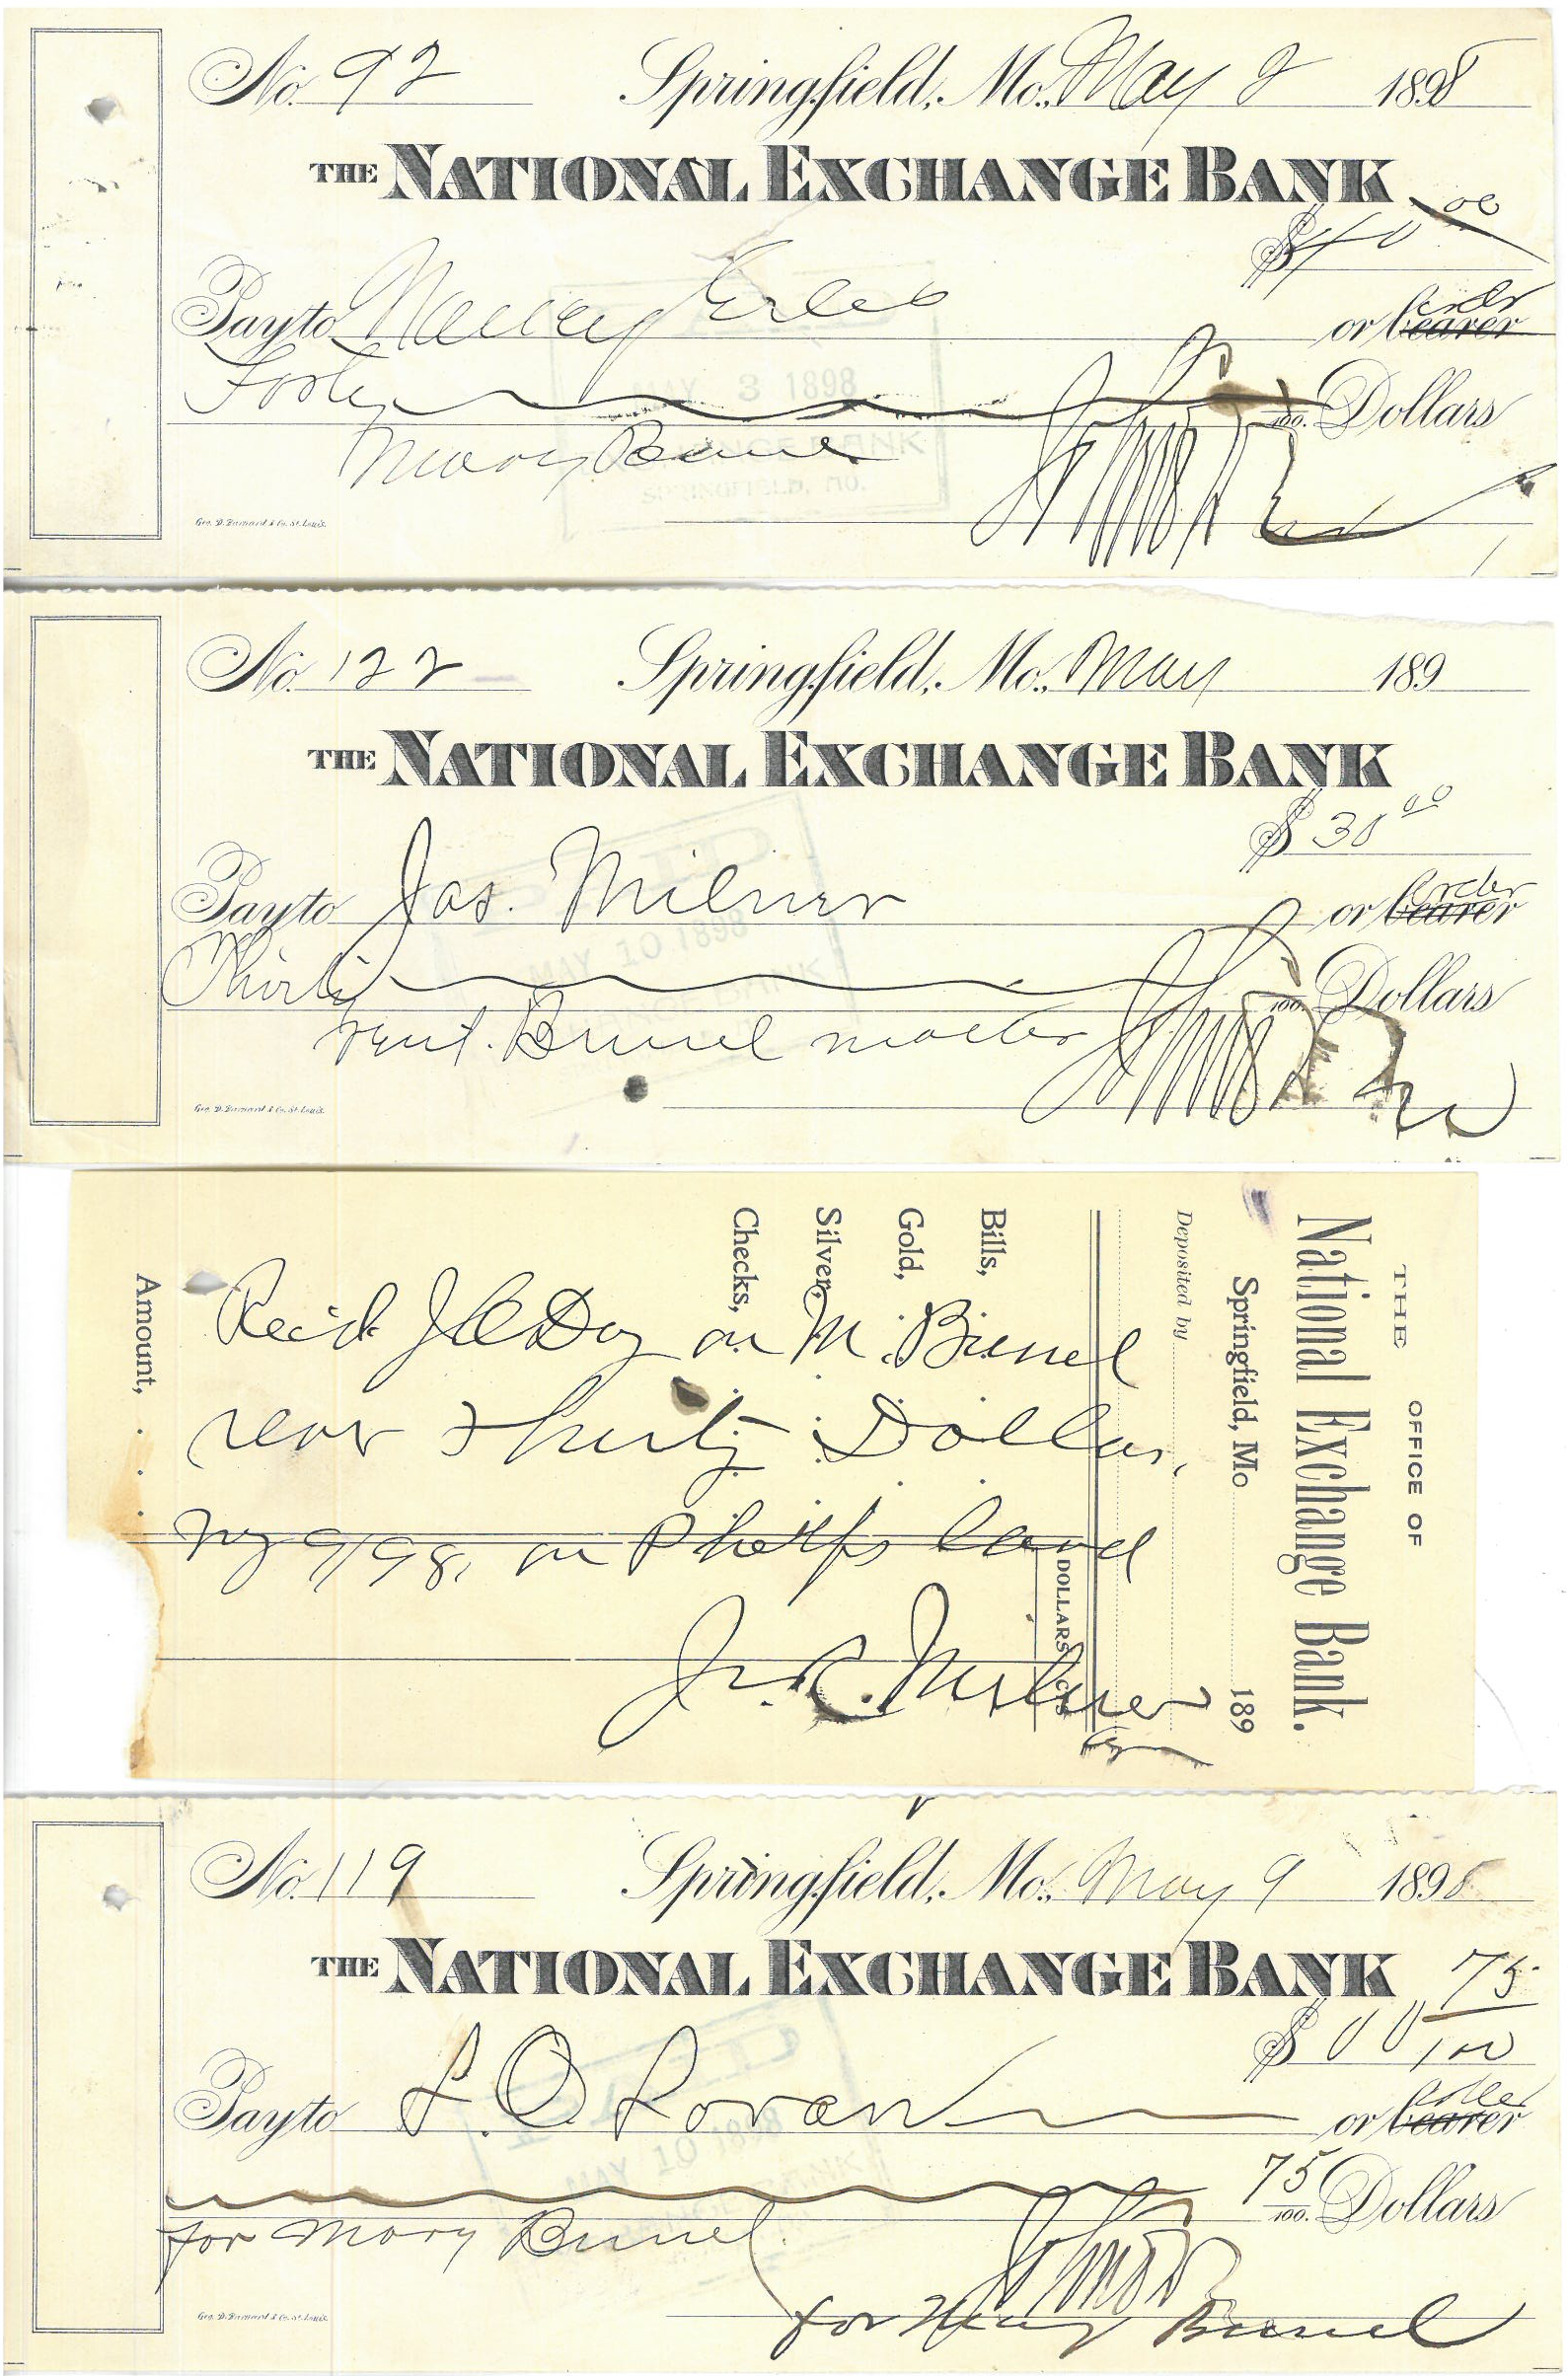 No. 92 Springfield, Mo., May 2 1898
THE NATIONAL EXCHANGE BANK
$40 00
Pay to Nancy or bearer order
Forty Dollars
100.
MAY 3 1898
EXCHANGE BANK
SPRINGFIELD, MO.
Mary
Geo. D. Barnard & Co. St. Louis.
No. 122 Springfield, Mo., May 189
THE NATIONAL EXCHANGE BANK
$30 00
Pay to Jas. Milner or bearer order
MAY 10 1898
Thirty Dollars
100.
rent. Brunel matter
Geo. D. Barnard & Co. St. Louis.
THE OFFICE OF
National Exchange Bank.
Springfield, Mo 189
Deposited by
DOLLARS CTS
Bills,
Gold,
Silver,
Checks,
Amount,
Recd on M. Brunel
Thirty Dollars,
9/98, on Phelps land
J. C. Milner
No. 119 Springfield, Mo., May 9 1898
THE NATIONAL EXCHANGE BANK
$00 75/100
Pay to L. O. or bearer order
MAY 10 1898
75
100. Dollars
for Mary Brunel.
for Mary Brunel
Geo. D. Barnard & Co. St. Louis.